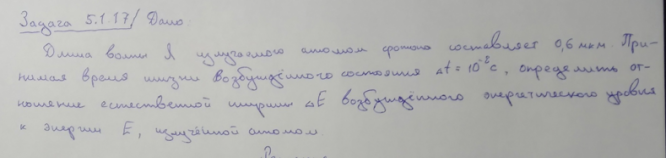 Задача 5.1.17/ Дано
Длина волны λ излучаемого атомом фотона составляет 0,6 мкм. При-
нимая время жизни возбуждённого состояния Δt = 10⁻⁸с, определить от-
ношение естественной ширины ΔE возбуждённого энергетического уровня
к энергии E, излучённой атомом